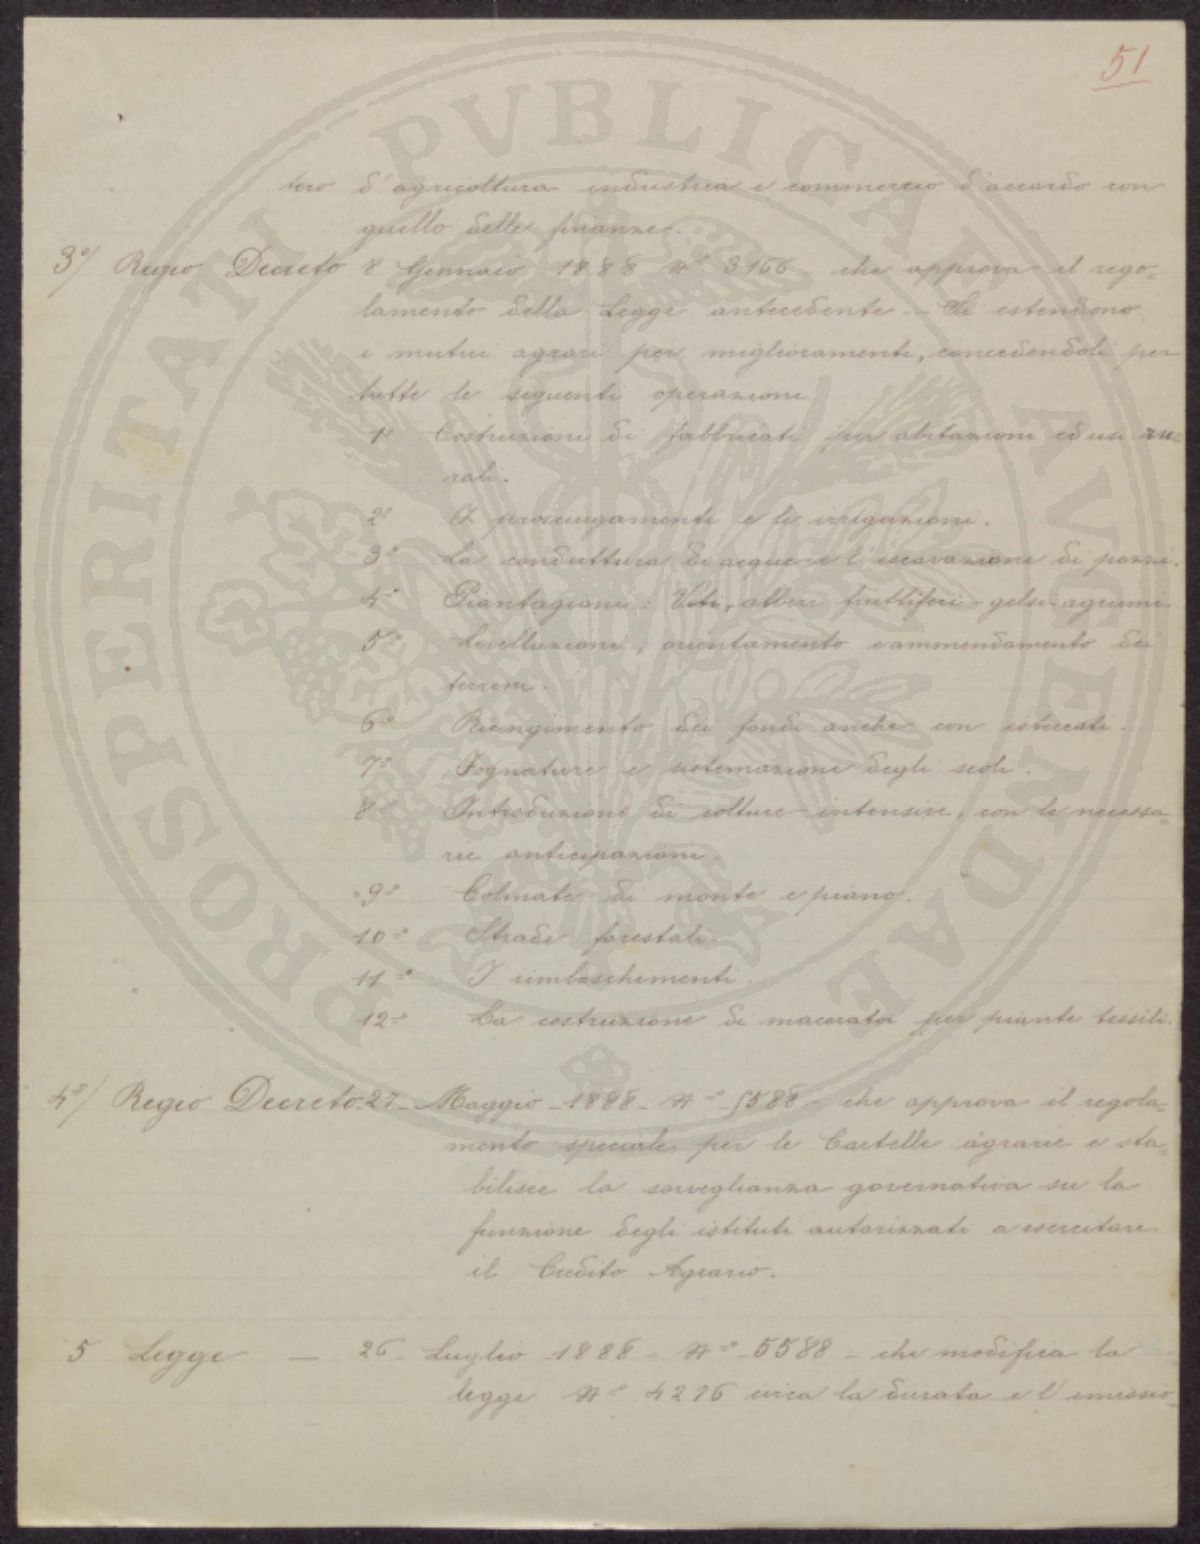 51
tero d'agricoltura industria e commercio d'accordo con
quello delle finanze.
3°/ Regio Decreto 8 Gennaio 1888 N° 3166 che approva il rego=
lamento della Legge antecedente – Si estendono
i mutui agrari per miglioramenti, concedendoli per
tutte le seguenti operazioni
1° Costruzioni di fabbricati per abitazioni ed usi ru=
rali.
2° I prosciugamenti e le irrigazioni.
3° La conduttura di acque e l'escavazione di pozzi.
4° Piantagioni: Viti, alberi fruttiferi - gelsi - agrumi.
5° Livellazioni, orientamento e ammendamento dei
terreni.
6° Recingimento dei fondi anche con isteccati.
7° Fognature e sistemazione degli scoli.
8° Introduzione di colture intensive, con le necessa=
rie anticipazioni.
9° Colmate di monte e piano.
10° Strade forestali.
11° I rimboschimenti.
12° La costruzione di maceratoi per piante tessili.
4°/ Regio Decreto 27 Maggio 1888 - N° 5588 - che approva il regola=
mento speciale per le Cartelle agrarie e sta=
bilisce la sorveglianza governativa su la
funzione degli istituti autorizzati a esercitare
il Credito Agrario.
5 Legge — 26 Luglio 1888 - N° 5588 - che modifica la
legge N° 4276 circa la durata e l'emissio=
PROSPERITATI PVBLICAE AVGENDAE